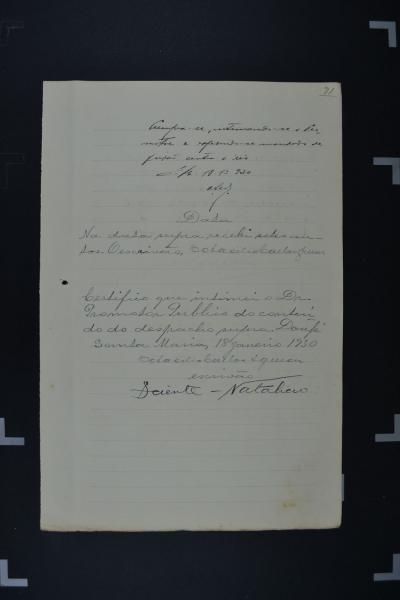 71
Cumpra-se, intimando-se o Pro-
motor e expedindo-se mandado de
prisão contra o réo.
S. M. 18.1.930
Data
Na data supra recebi estes au-
tos. O escrivão,
Certifico que intimei o Dr.
Promotor Publico do conteú-
do do despacho supra. Doufé
Santa Maria, 18 Janeiro 1930
escrivão
Sciente –